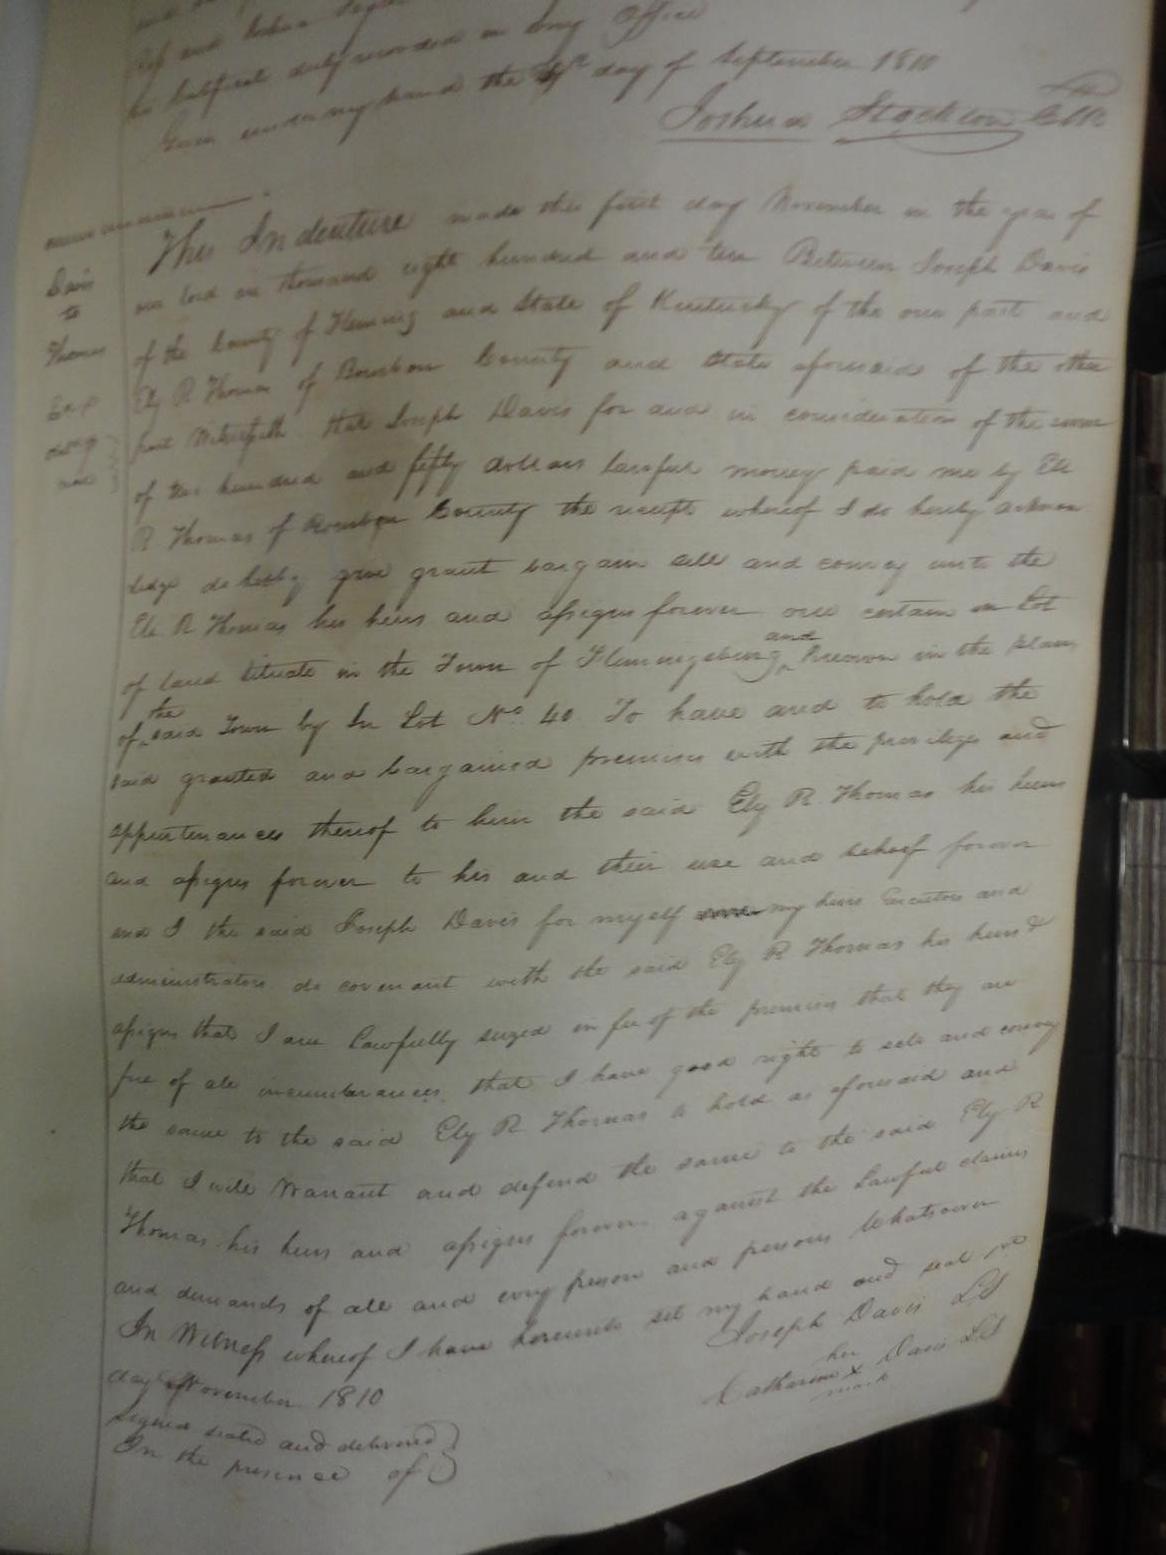 Rep and Joshua
is halfical duly recorded in my Office
Given under my hand the day of September 1810
Joshua Stockton Clk
Davis
to
Thomas
This Indenture made this first day November in the year of
our lord on thousand eight hundred and ten Between Joseph Davis
of the County of Fleming and State of Kentucky of the one part and
Ely R Thomas of Bourbon County and State aforesaid of the other
part Witnesseth that Joseph Davis for and in consideration of the sum
of two hundred and fifty dollars lawful money paid me by Eli
R Thomas of Bourbon County the receipt whereof I do hereby acknow
ledge do hereby give grant bargain sell and convey unto the
Eli R Thomas his heirs and assigns forever one certain in Lot
of land situate in the Town of Flemingsburg and known in the plan
of the said Town by In Lot No. 40 To have and to hold the
said granted and bargained premises with the privileges and
appurtenances thereof to him the said Ely R Thomas his heirs
and assigns forever to his and their use and behoof forever
and I the said Joseph Davis for myself my heirs Executors and
administrators do covenant with the said Ely R Thomas his heirs &
assigns that I am lawfully seized in fee of the premises that they are
free of all incumbrances that I have good right to sell and convey
the same to the said Ely R Thomas to hold as aforesaid and
that I will Warrant and defend the same to the said Ely R
Thomas his heirs and assigns forever against the lawful claims
and demands of all and evry person and persons Whatsoever
In Witness whereof I have hereunto set my hand and seal 1st
day November 1810
Joseph Davis LS
her
Catharine X Davis LS
mark
Signed sealed and delivered
In the presence of